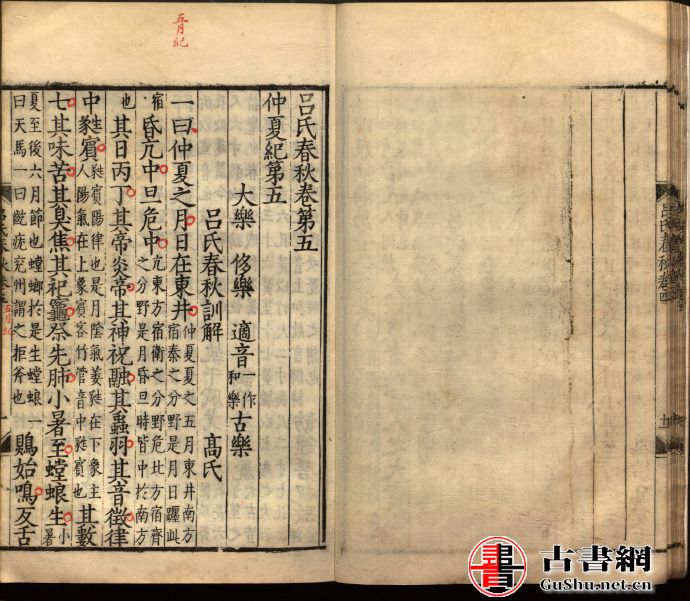 五月紀
呂氏春秋卷第五
仲夏紀第五
大樂 侈樂 適音一作和樂 古樂
呂氏春秋訓解 高氏
一曰仲夏之月日在東井仲夏夏之五月東井南方宿秦之分野是月日躔此
宿昏亢中旦危中亢東方宿衛之分野危北方宿齊之分野是月昏旦時皆中於南方
也其日丙丁其帝炎帝其神祝融其蟲羽其音徵律
中蕤賓蕤賓陽律也是月陰氣萎蕤在下象主人陽氣在上象賓客竹管音中蕤賓也其數
七其味苦其臭焦其祀竈祭先肺小暑至螳蜋生小暑
夏至後六月節也螳螂於是生螳蜋一曰天馬一曰齕疣兗州謂之拒斧也鵙始鳴反舌
呂氏春秋卷五
五月紀
一
呂氏春秋卷四
古書網
GuShu.net.cn